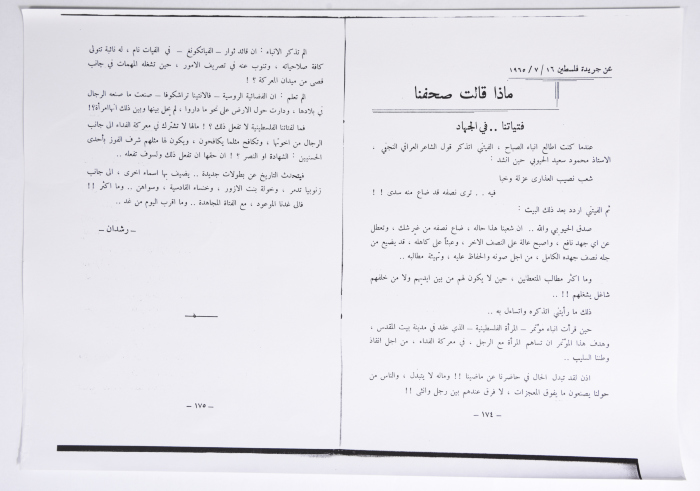 عن جريدة فلسطين ١٦ / ٧ / ١٩٦٥
ماذا قالت صحفنا
فتياتنا .. في الجهاد
عندما كنت اطالع انباء الصباح ، الفيتني اتذكر قول الشاعر العراقي النجفي ،
الاستاذ محمود سعيد الحبوبي حين انشد :
شعب نصيب العذارى عزلة وخبا
فيه .. ترى نصفه قد ضاع منه سدى ! !
ثم الفيتني اردد بعد ذلك البيت :
صدق الحبوبي والله .. ان شعبنا هذا حاله ، ضاع نصفه من غير شك ، وتعطل
عن اي جهد نافع ، واصبح عالة على النصف الاخر ، وعبئاً على كاهله ، قد يضيع من
جله نصف جهده الكامل ، من اجل صونه والحفاظ عليه ، وتهيئة مطالبه ..
وما اكثر مطالب المتعطلين ، حين لا يكون لهم من بين ايديهم ولا من خلفهم
شاغل يشغلهم !! ..
ذلك ما رأيتني اتذكره واتساءل به ..
حين قرأت انباء مؤتمر – المرأة الفلسطينية – الذي عقد في مدينة بيت المقدس ،
وهدف هذا المؤتمر ان تساهم المرأة مع الرجل . في معركة الفداء ، من اجل انقاذ
وطننا السليب ..
اذن لقد تبدل الحال في حاضرنا عن ماضينا !! وماله لا يتبدل ، والناس من
حولنا يصنعون ما يفوق المعجزات ، لا فرق عندهم بين رجل وانثى !!
– ١٧٤ –
الم تذكر الانباء : ان قائد ثوار – الفياتكونغ – في الفيات نام ، له نائبة تتولى
كافة صلاحياته ، وتنوب عنه في تصريف الامور ، حين تشغله المهمات في جانب
قصي من ميدان المعركة ؟ !
الم تعلم : ان الفضائية الروسية – فالانتينا تراشكوفا – صنعت ما صنعه الرجال
في بلادها ، ودارت حول الارض على نحو ما داروا ، لم يحل بينها وبين ذلك انها امرأة !؟
فما لفتاتنا الفلسطينية لا تفعل ذلك ؟ ! مالها لا تشترك في معركة الفداء الى جانب
الرجال من اخوتها ، وتكافح مثلما يكافحون ، ويكون لها مثلهم شرف الفوز بأحدى
الحسنيين : الشهادة او النصر ؟ ! ان حقها ان تفعل ذلك ولسوف تفعله ..
فيتحدث التاريخ عن بطولات جديدة .. يضيف بها اسماء اخرى ، الى جانب
زنوبيا تدمر ، وخولة بنت الازور ، وخنساء القادسية ، وسواهن .. وما اكثر !!
فالى غدنا الموعود ، مع الفتاة المجاهدة .. وما اقرب اليوم من غد ..
– رشدان –
– ١٧٥ –